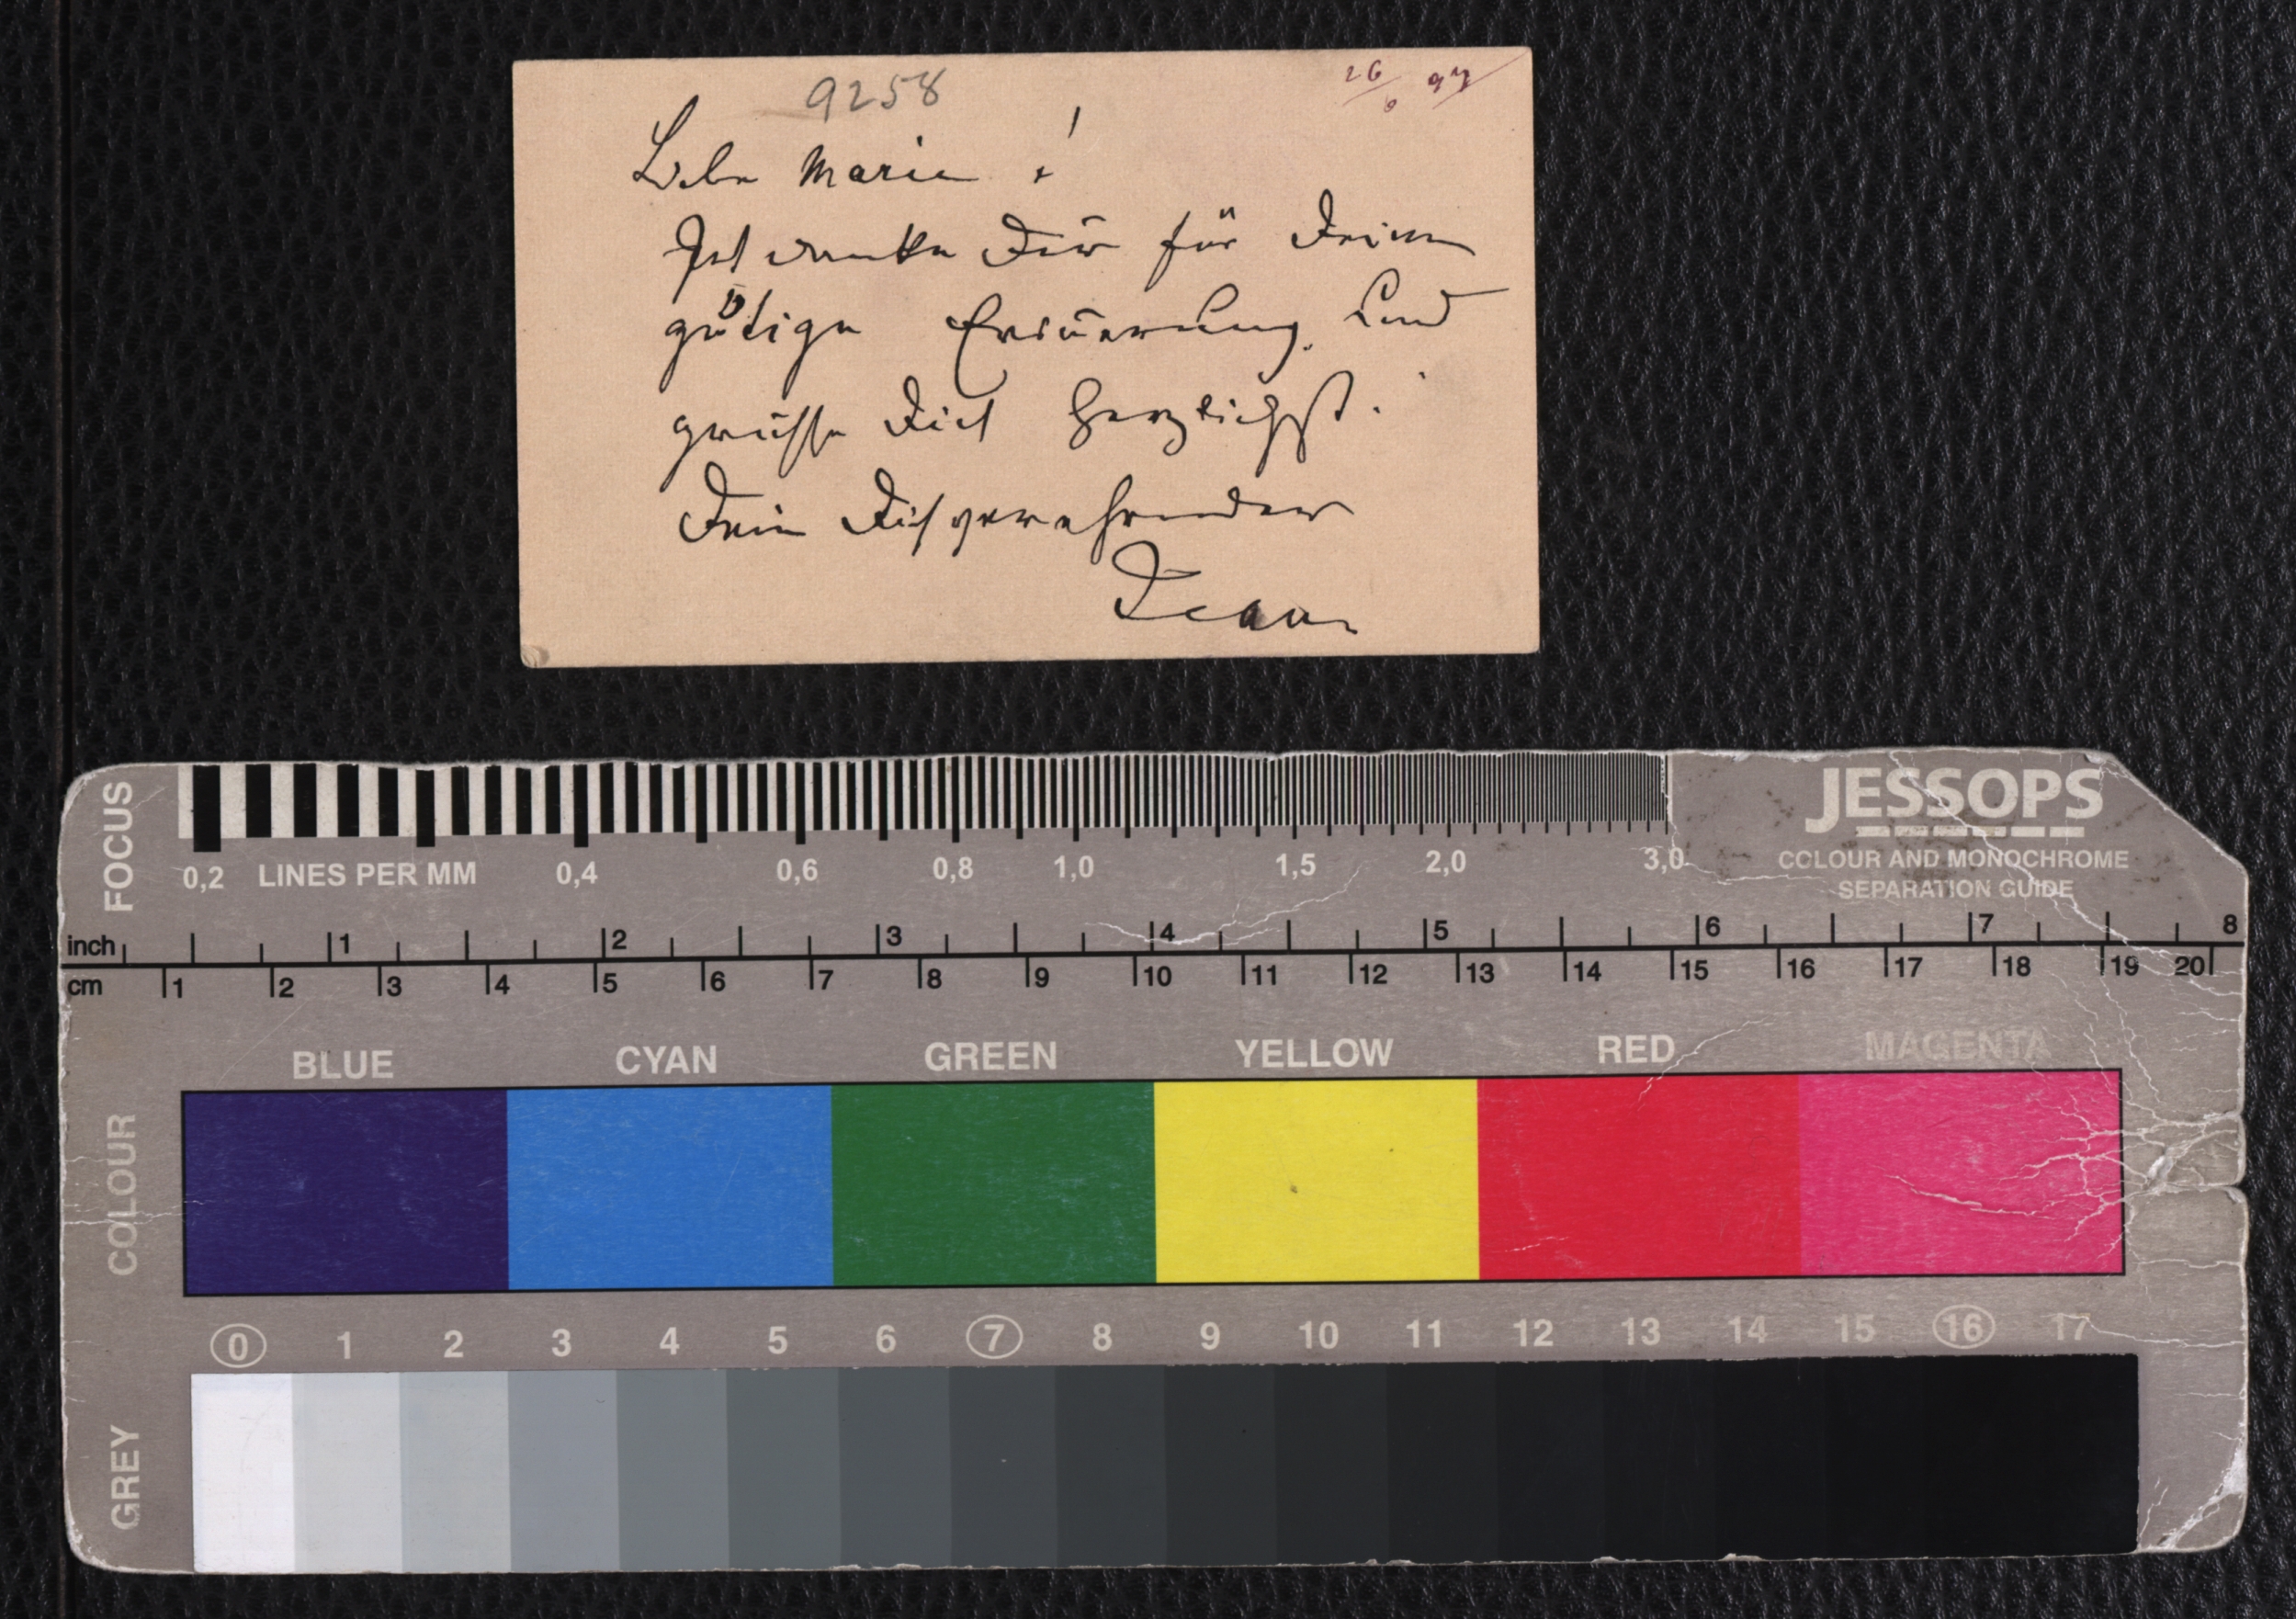 9258
26/6 97
Liebe Marie!
Ich danke Dir für Deine
gütige Erinerung. Und
grüsse Dich herzlichst.
Dein Dich verehrender
Jean
FOCUS
JESSOPS
COLOUR AND MONOCHROME
SEPARATION GUIDE
0,2 LINES PER MM 0,4 0,6 0,8 1,0 1,5 2,0 3,0
inch 1 2 3 4 5 6 7 8
cm 1 2 3 4 5 6 7 8 9 10 11 12 13 14 15 16 17 18 19 20
BLUE CYAN GREEN YELLOW RED MAGENTA
COLOUR
0 1 2 3 4 5 6 7 8 9 10 11 12 13 14 15 16 17
GREY